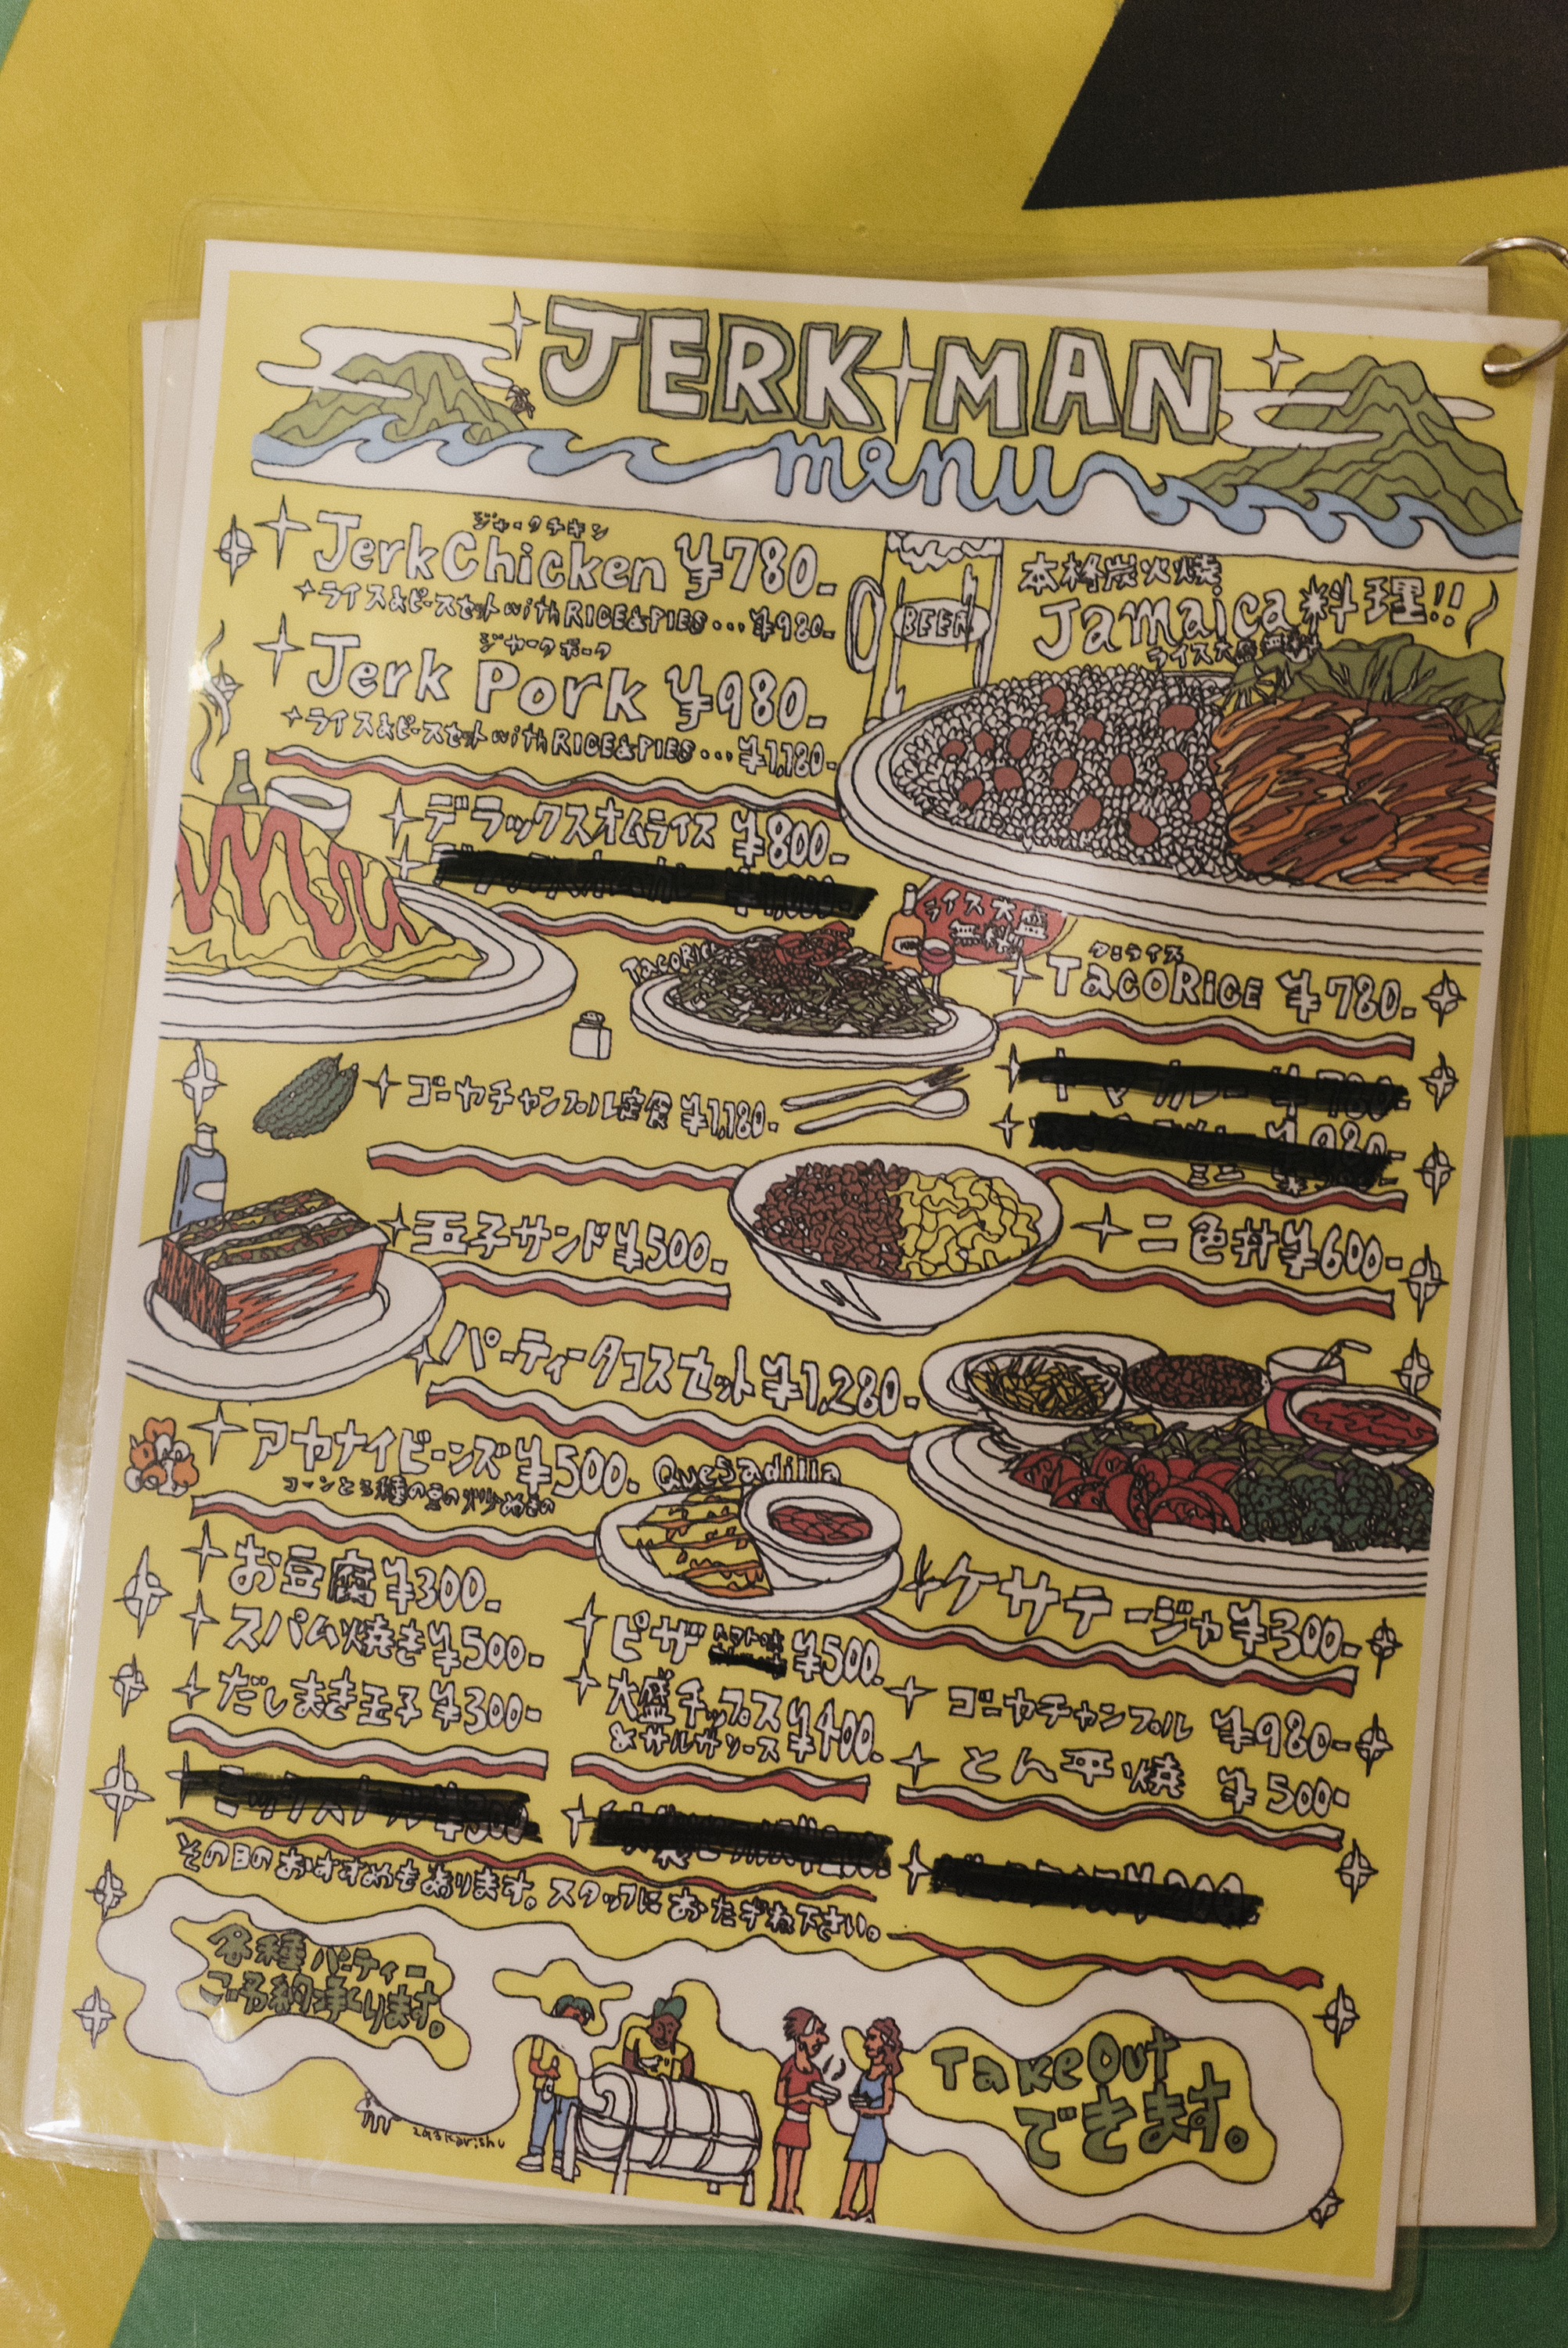 JERK MAN
menu
ジャークチキン
Jerk Chicken ¥780-
ライス&ピースセット with RICE&PIES...¥980-
ジャークポーク
Jerk Pork ¥980-
ライス&ピースセット with RICE&PIES...¥1,180-
BEER
本格炭火焼
Jamaica料理!!
ライス大盛無料
デラックスオムライス ¥800-
ライス大盛
無料
TACORIC
タコライス
TACORICE ¥780-
ゴーヤチャンプル定食 ¥1,180-
玉子サンド ¥500-
二色丼 ¥600-
ミニ
パーティータコスセット ¥1,280-
アヤナイビーンズ ¥500-
コーンと3種の豆の炒めもの
Quesadilla
お豆腐 ¥300-
スパム焼き ¥500-
だしまき玉子 ¥300-
ピザ ¥500-
大盛チップス
&サルサソース ¥400-
ケサデージャ ¥300-
ゴーヤチャンプル ¥980-
とん平焼 ¥500-
その日のおすすめもあります。スタッフにおたずね下さい。
各種パーティー
ご予約承ります。
Take Out
できます。